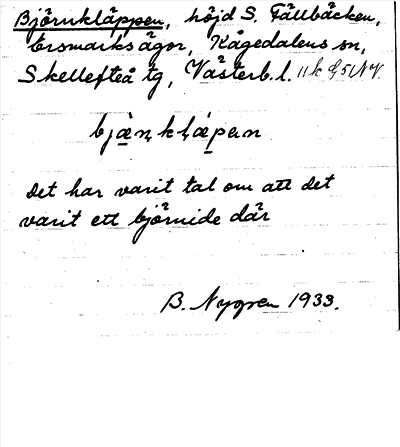 Björnkläppen, höjd S. Fällbäcken,
Ersmarks ägor, Kågedalens sn,
Skellefteå tg, Västerb. l.
bjän̥kḷäpen
Det har varit tal om att det
varit ett björnide där
B. Nygren 1933.